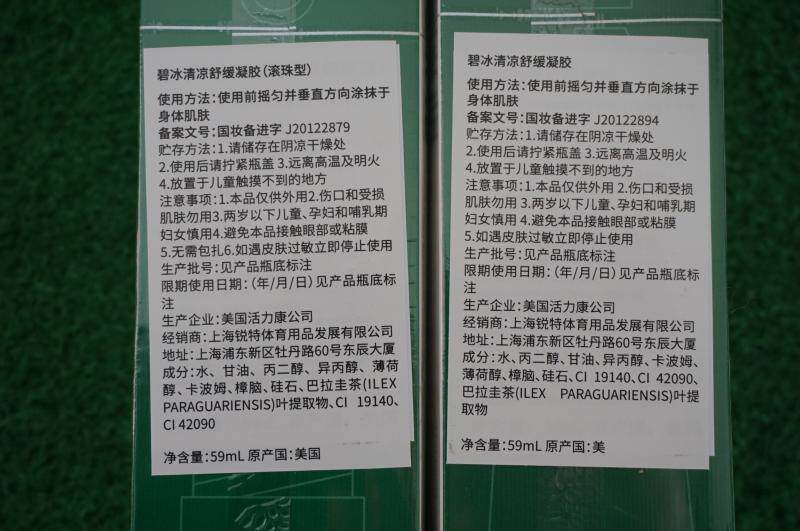 碧冰清凉舒缓凝胶(滚珠型)
使用方法:使用前摇匀并垂直方向涂抹于
身体肌肤
备案文号:国妆备进字 J20122879
贮存方法:1.请储存在阴凉干燥处
2.使用后请拧紧瓶盖 3.远离高温及明火
4.放置于儿童触摸不到的地方
注意事项:1.本品仅供外用 2.伤口和受损
肌肤勿用 3.两岁以下儿童、孕妇和哺乳期
妇女慎用 4.避免本品接触眼部或粘膜
5.无需包扎 6.如遇皮肤过敏立即停止使用
生产批号:见产品瓶底标注
限期使用日期:(年/月/日)见产品瓶底标
注
生产企业:美国活力康公司
经销商:上海锐特体育用品发展有限公司
地址:上海浦东新区牡丹路60号东辰大厦
成分:水、甘油、丙二醇、异丙醇、薄荷
醇、卡波姆、樟脑、硅石、巴拉圭茶(ILEX
PARAGUARIENSIS)叶提取物、CI 19140、
CI 42090
净含量:59mL 原产国:美国
碧冰清凉舒缓凝胶
使用方法:使用前摇匀并垂直方向涂抹于
身体肌肤
备案文号:国妆备进字 J20122894
贮存方法:1.请储存在阴凉干燥处
2.使用后请拧紧瓶盖 3.远离高温及明火
4.放置于儿童触摸不到的地方
注意事项:1.本品仅供外用 2.伤口和受损
肌肤勿用 3.两岁以下儿童、孕妇和哺乳期
妇女慎用 4.避免本品接触眼部或粘膜
5.如遇皮肤过敏立即停止使用
生产批号:见产品瓶底标注
限期使用日期:(年/月/日)见产品瓶底标
注
生产企业:美国活力康公司
经销商:上海锐特体育用品发展有限公司
地址:上海浦东新区牡丹路60号东辰大厦
成分:水、丙二醇、甘油、异丙醇、卡波姆、
薄荷醇、樟脑、硅石、CI 19140、CI 42090、
巴拉圭茶(ILEX PARAGUARIENSIS)叶提
取物
净含量:59mL 原产国:美